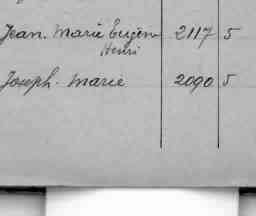 Jean. Marie Eugène 2117 5
Henri
Joseph. Marie 2090 5